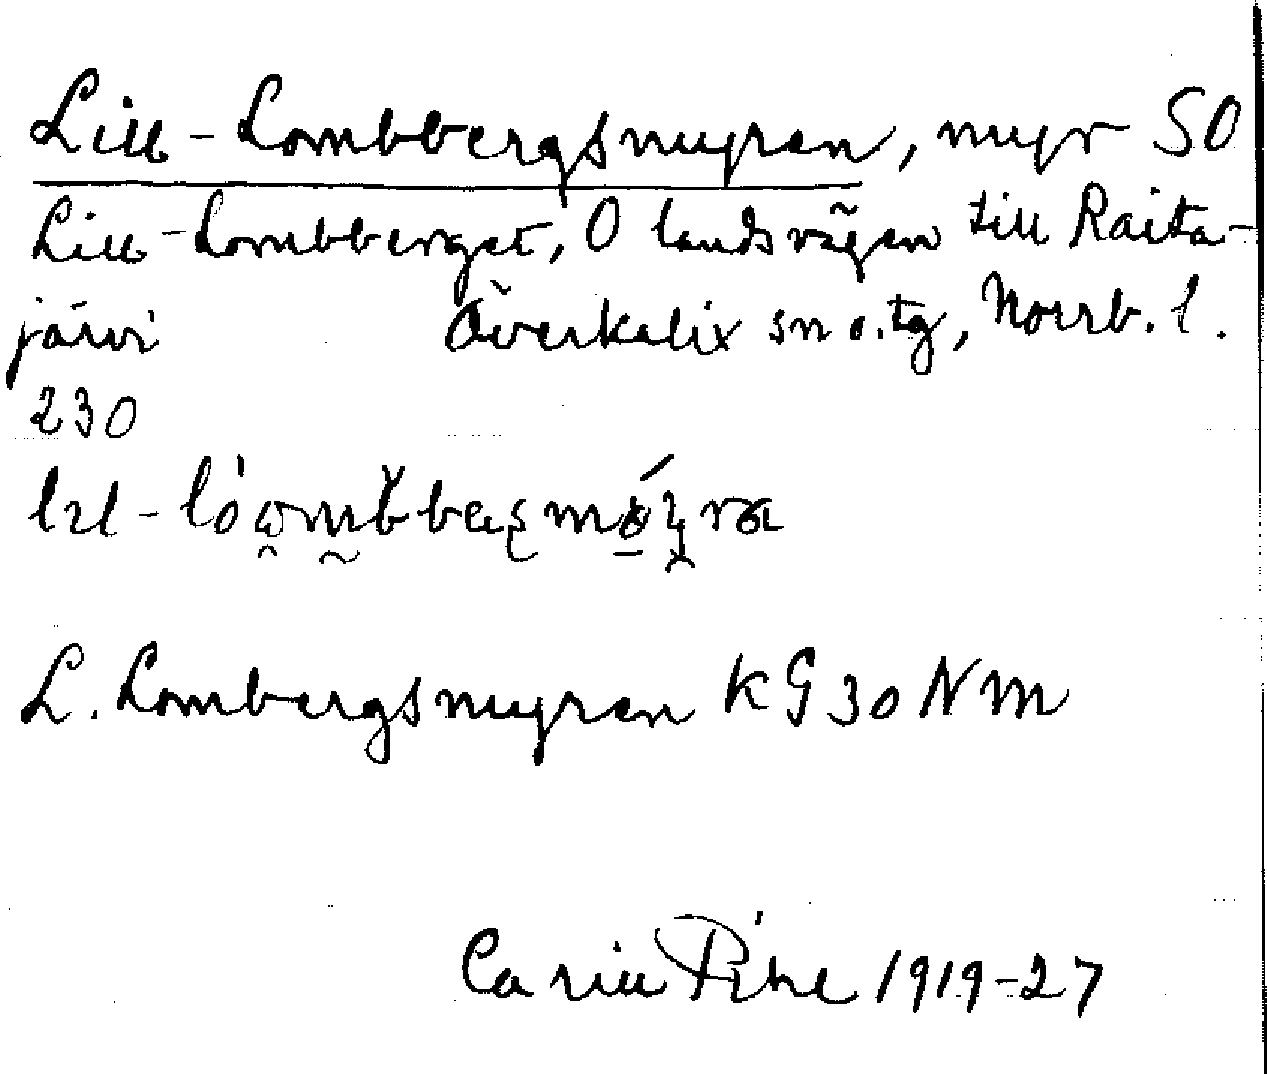 Lill-Lombbergsmyran, myr SO
Lill-Lombberget, O landsvägen till Raita-
järvi Överkalix sn o. tg, Norrb. l.
230
L. Lombergsmyran KG 30 NM
Carin Pihl 1919-27